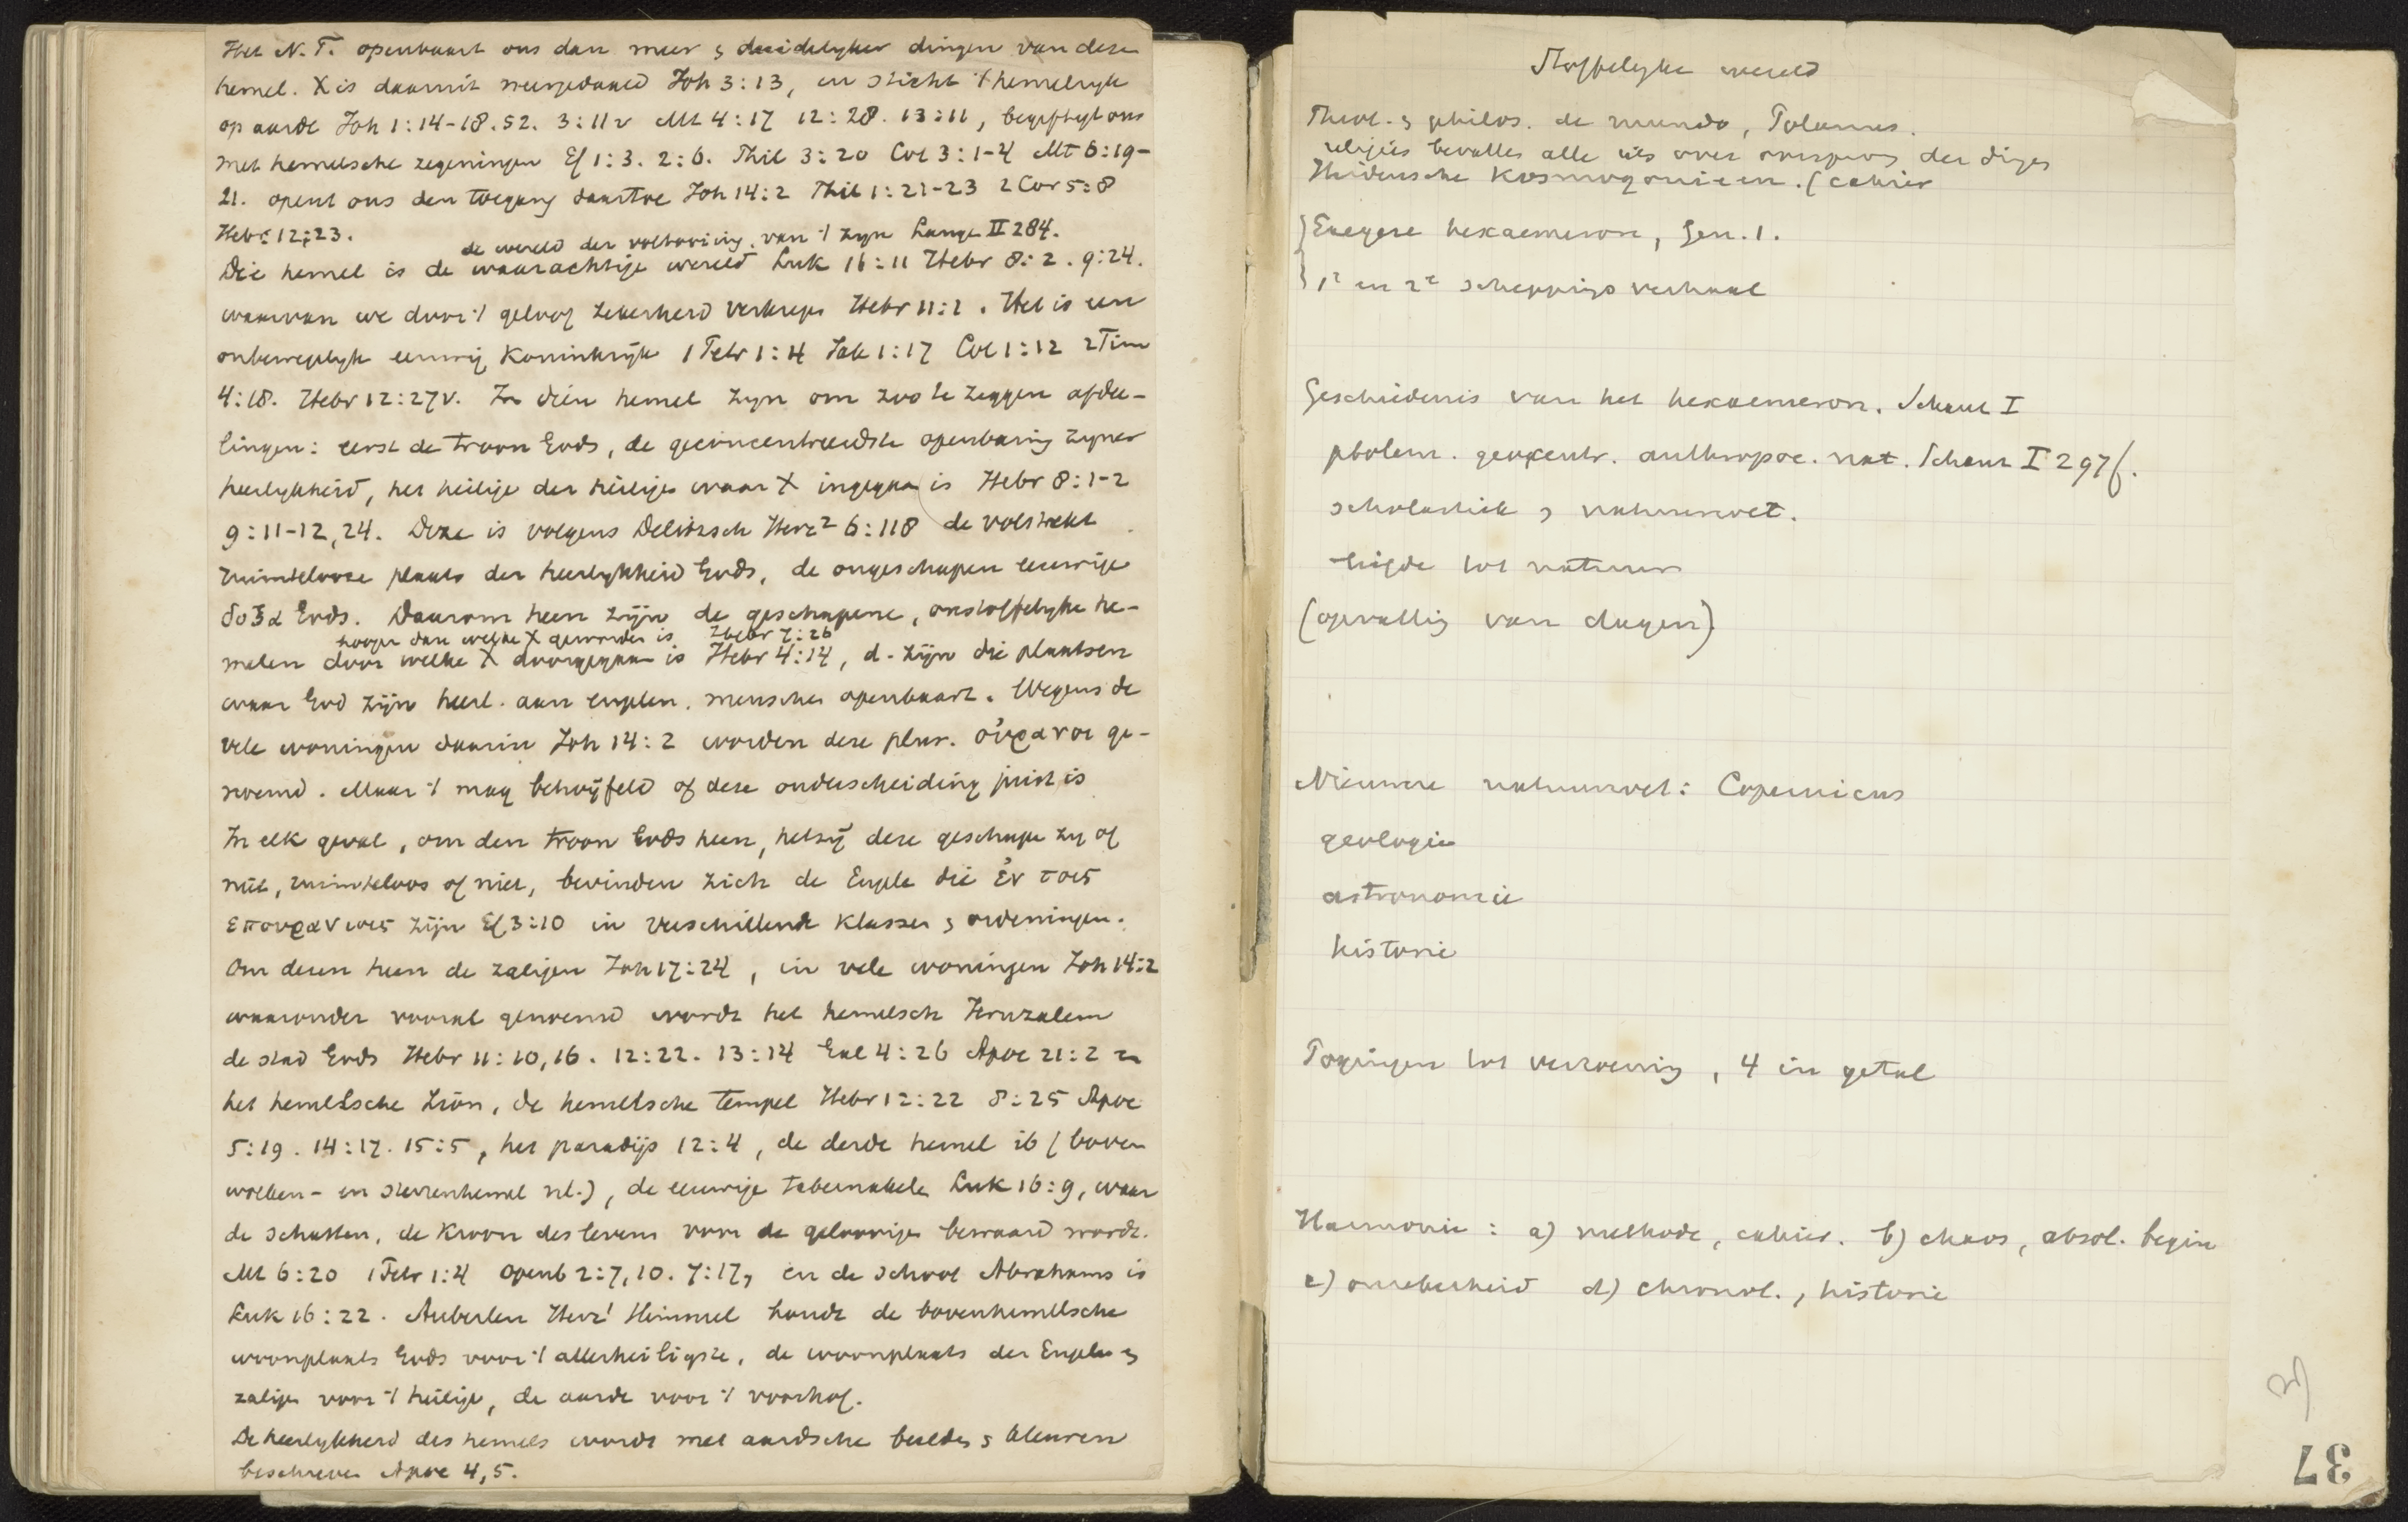 Het N.T. openbaart ons dan meer & duidelyker dingen van deze
hemel. X is daaruit neergedaald Joh 3:13, en sticht 't hemelryk
op aarde Joh 1:14-18.52. 3:11v Mt 4:17 12:28. 13:11, begiftigt ons
met hemelsche zegeningen Ef 1:3. 2:6. Phil 3:20 Col 3:1-4 Mt 6:19-
21. opent ons den toegang daartoe Joh 14:2 Phil 1:21-23 2 Cor 5:8
Hebr 12:23.
de wereld der voltooiing, van 't zyn Lange II 284.
Die hemel is de waarachtige wereld Luk 16:11 Hebr 8:2. 9:24.
waarvan we door 't geloof zekerheid verkregen Hebr 11:1. Het is een
onbeweeglyk eeuwig Koninkrijk 1 Petr 1:4 Jak 1:17 Col 1:12 2 Tim
4:18. Hebr 12:27v. In dien hemel zyn om zoo te zeggen afdee-
lingen: eerst de troon Gods, de geconcentreerdste openbaring zyner
heerlykheid, het heilige der heiligen waar X ingegaan is Hebr 8:1-2
9:11-12,24. Deze is volgens Delitzsch Herz² 6:118 de volstrekt
ruimtelooze plaats der heerlykheid Gods, de ongeschapen eeuwige
δοξα Gods. Daarom heen zijn de geschapene, onstoffelyke he-
hooger dan welke X geworden is Hebr 7:26
melen door welke X doorgegaan is Hebr 4:14, d. zijn die plaatsen
waar God zijn heerl. aan engelen, menschen openbaart. Wegens de
vele woningen daarin Joh 14:2 worden deze plur. οὐρανοι ge-
noemd. Maar 't mag betwijfeld of deze onderscheiding juist is
In elk geval, om den troon Gods heen, hetzij deze geschapen zy of
niet, ruimteloos of niet, bevinden zich de Engelen die ἐν τοις
επουρανιοις zijn Ef 3:10 in verschillende klassen & ordeningen.
Om dezen heen de zaligen Joh 17:24, in vele woningen Joh 14:2
waaronder vooral genoemd wordt het hemelsch Jeruzalem
de stad Gods Hebr 11:10,16. 12:22. 13:14 Gal 4:26 Apoc 21:2 en
het hemelsche Sion, de hemelsche tempel Hebr 12:22 8:25 Apoc
5:19. 14:17. 15:5, het paradijs 12:4, de derde hemel ib (boven
wolken- en sterrenhemel nl.), de eeuwige tabernakelen Luk 16:9, waar
de schatten, de kroon des levens voor de geloovigen bewaard wordt.
Mt 6:20 1 Petr 1:4 Openb 2:7,10. 7:17, en de schoot Abrahams is
Luk 16:22. Auberlen Herz¹ Himmel houdt de bovenhemelsche
woonplaats Gods voor 't allerheiligste, de woonplaats der Engelen &
zaligen voor 't heilige, de aarde voor 't voorhof.
De heerlykheid des hemels wordt met aardsche beelden & kleuren
beschreven Apoc 4,5.
Stoffelyke wereld
Theol. & philos. de mundo, Polanus.
religies bevatten alle iets over oorsprong der dingen
Heidensche Kosmogonieen. (cahier
Exegese hexaemeron, Gen. 1.
1e en 2e scheppingsverhaal
Geschiedenis van het hexaemeron. Schanz I
ptolem. geocentr. anthropoc. nat. Schanz I 297f.
scholastiek & natuurwet.
liefde tot natuur
(opvatting van dagen)
Nieuwere natuurwet: Copernicus
geologie
astronomie
historie
Pogingen tot verzoening, 4 in getal
Harmonie: a) methode, cahier. b) chaos, absol. begin
c) onzekerheid d) chronol., historie
37